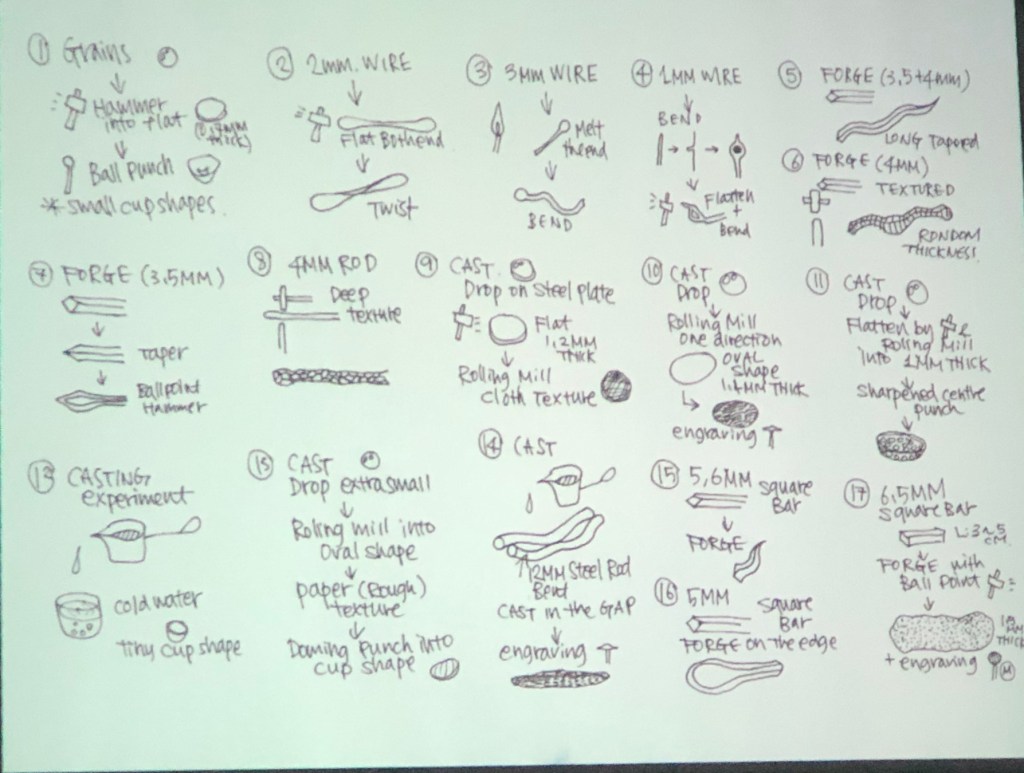 ① Grains
Hammer
into flat
thick)
Ball Punch
* small cup shapes.
② 2mm. WIRE
Flat Bothend
Twist
③ 3MM WIRE
Melt
the end
BEND
④ 1MM WIRE
BEND
Flatten
+
Bend
⑤ FORGE (3,5+4mm)
LONG Tapered
⑥ FORGE (4MM)
TEXTURED
RONDOM
THICKNESS!
⑦ FORGE (3,5MM)
Taper
Ballpoint
Hammer
⑧ 4MM ROD
Deep
texture
⑨ CAST
Drop on steel plate
Flat
1,2MM
THICK
Rolling Mill
Cloth Texture
⑩ CAST
Drop
Rolling Mill
one direction
OVAL
shape
THICK
engraving
⑪ CAST
Drop
Flatten by
Rolling Mill
into 1MM THICK
sharpened centre
punch
⑫ CASTING
experiment
cold water
tiny cup shape
⑬ CAST
Drop extra small
Rolling mill into
Oval shape
paper (Rough)
texture
Doming Punch into
cup shape
⑭ CAST
12MM Steel Rod
Bend
CAST in the GAP
engraving
⑮ 5,6MM square
Bar
FORGE
⑯ 5MM square
Bar
FORGE on the edge
⑰ 6,5MM
square Bar
L:3~5
CM.
FORGE with
Ball Point
MM
THICK
+ engraving